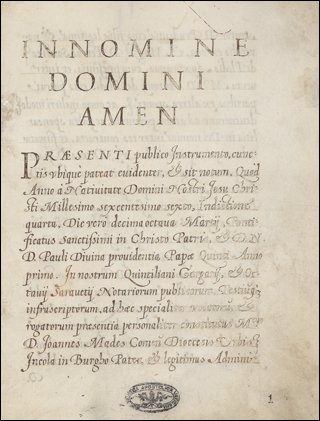 IN NOMINE
DOMINI
AMEN
PRÆSENTI publico Instrumento, cunc-
tis vbique pateat euidenter, & sit notum, Quod
Anno à Natiuitate Domini Nostri Jesu Chri-
sti Millesimo sexcentesimo sexto, Indictione
quarta, Die verò decima octaua Martij, Ponti-
ficatus Sanctissimi in Christo Patris, & D. N.
D. Pauli Diuina prouidentia Papæ Quinti Anno
primo. In nostrum Quintiliani Gargarij, & Oc-
tauij Sarauetij Notariorum publicorum Testiumq
infrascriptorum, ad hæc specialiter vocatorum, &
rogatorum præsentia personaliter constitutus
D. Joannes Modes
Incola in Burgho & legitimus Admini-
1